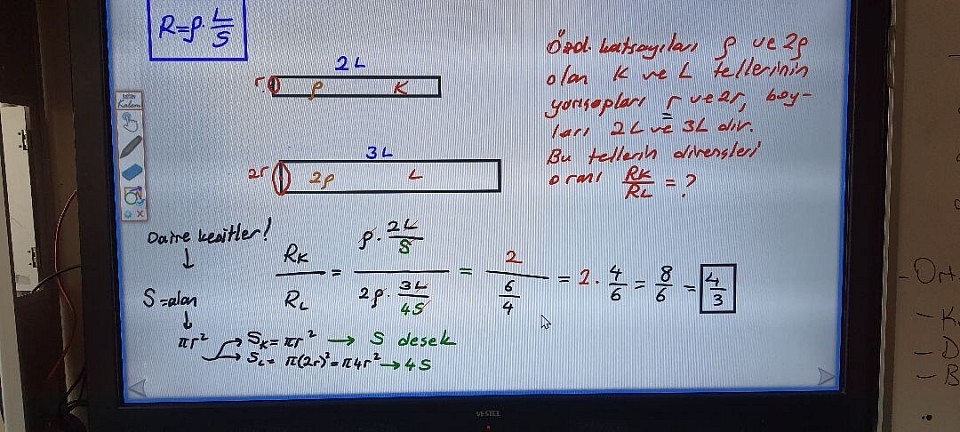 R=ρ.L/S
2L
r ρ K
3L
2r 2ρ L
Özd. katsayıları ρ ve 2ρ
olan K ve L tellerinin
yarıçapları r ve 2r, boy-
ları 2L ve 3L dir.
Bu tellerin dirençleri
oranı RK/RL = ?
Kalem
Daire kesitler!
↓
S=alan
↓
πr²
RK/RL = (ρ.2L/S)/(2ρ.3L/4S) = 2/(6/4) = 2.4/6 = 8/6 = 4/3
SK = πr² → S desek
SL = π(2r)² = π4r² → 4S
VESTEL
- Ort
- K
- D
- B